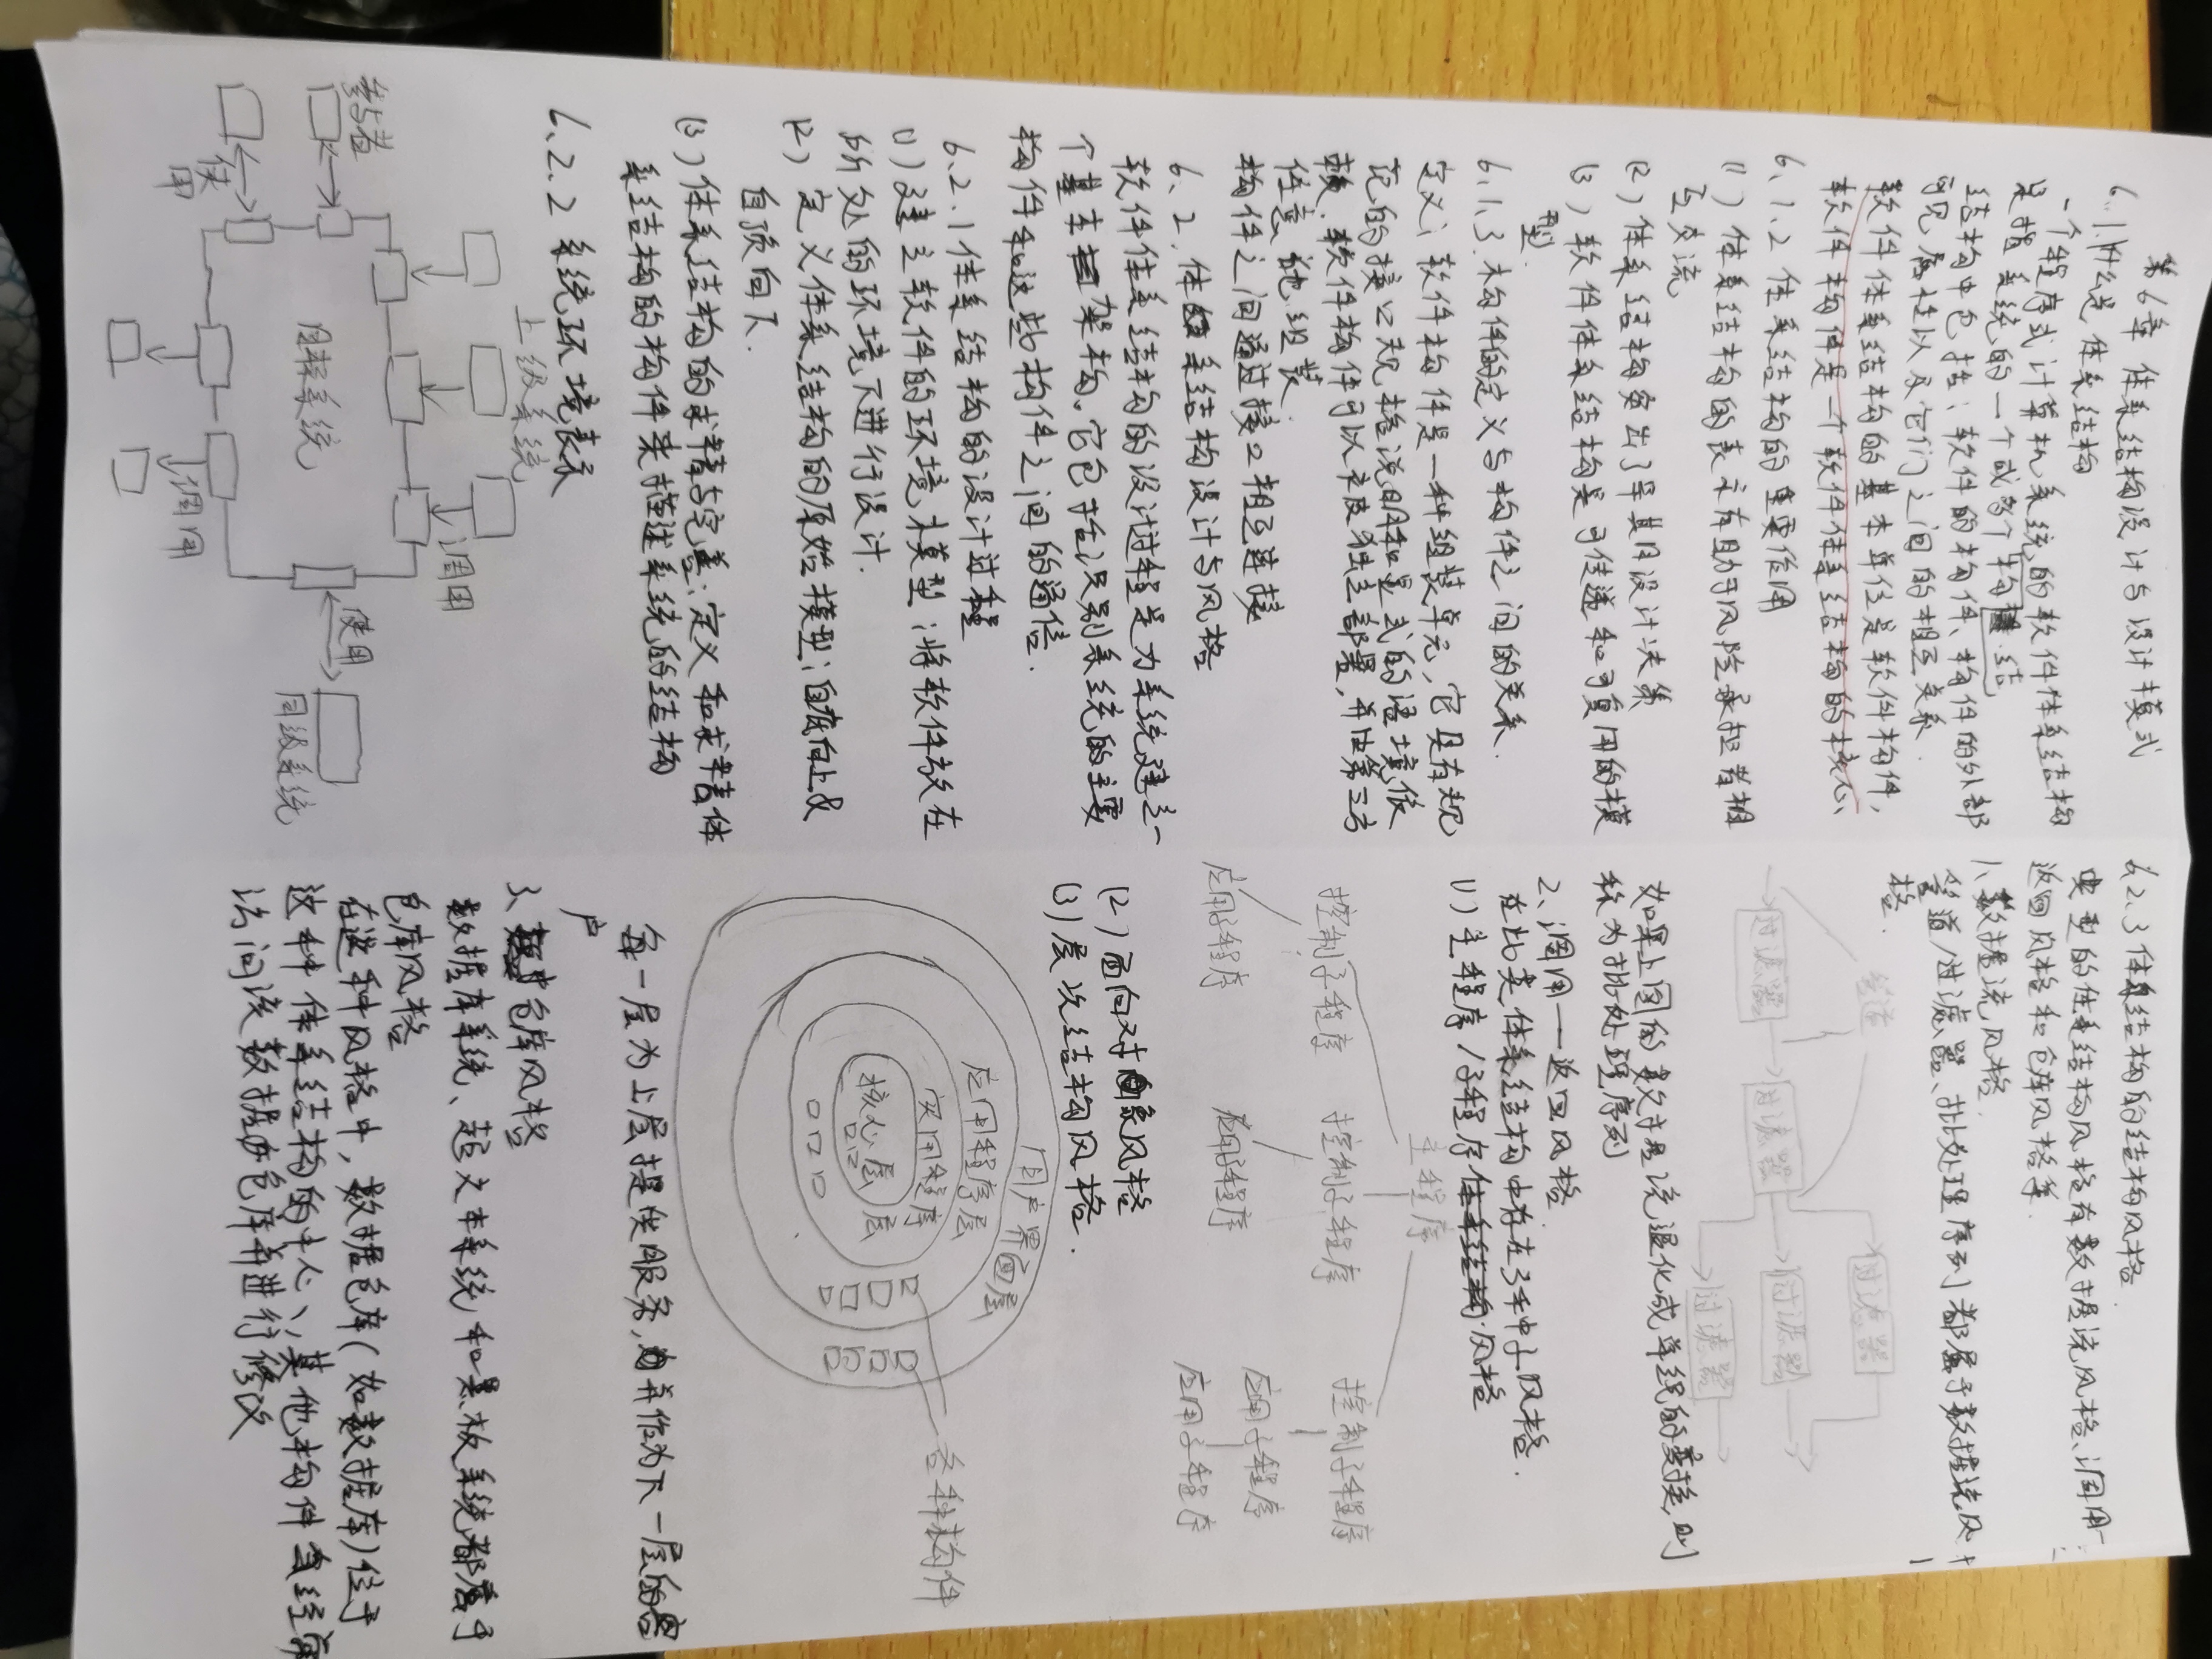 第6章 体系结构设计与设计模式
6.1.1什么是体系结构
一个程序式计算机系统的软件体系结构
是指系统的一个或多个构 结
结构中包括：软件的构件、构件的外部
可见属性以及它们之间的相互关系.
软件体系结构的基本单位是软件构件,
软件构件是一个软件体系结构的核心、
6.1.2 体系结构的重要作用
(1) 体系结构的表示有助于风险承担者相
互交流
(2) 体系结构突出了早期设计决策
(3) 软件体系结构是可传递和可复用的模
型.
6.1.3.构件的定义与构件之间的关系.
定义: 软件构件是一种组装单元, 它具有规
范的接口规格说明和显式的语境依
赖.软件构件可以被独立部署,并由第三方
任意地组装.
构件之间通过接口相互连接
6.2.体系结构设计与风格
软件体系结构的设计过程是为系统建立一
个基本架构。它包括识别系统的主要
构件和这些构件之间的通信.
6.2.1体系结构的设计过程
(1)建立软件的环境模型;将软件放在
所处的环境下进行设计.
(2) 定义体系结构的原始模型;自底向上或
自顶向下.
(3)体系结构的求精与完善:定义和求精体
系结构的构件来描述系统的结构
6.2.2 系统环境表示
上级系统
调用
参与者
目标系统
使用
同级系统
使
用
调用
6.2.3体系结构的结构风格.
典型的体系结构风格有数据流风格、调用-
返回风格和仓库风格等.
1、数据流风格.
管道/过滤器、批处理序列都属于数据流风
格.
管道
过滤器
过滤器
过滤器
过滤器
过滤器
如果上图的数据流退化成单线的变换,则
称为批处理序列
2、调用——返回风格.
在此类体系结构中存在3种子风格.
(1)主程序/子程序体系结构风格
主程序
控制子程序 控制子程序 控制子程序
应用子程序 应用子程序 应用子程序
应用子程序
(2)面向对象风格
(3)层次结构风格.
用户界面层
应用程序层
实用程序
层
核心层
各种构件
每一层为上层提供服务,并作为下一层的客
户
3、仓库风格
数据库系统、超文本系统和黑板系统都属于
仓库风格
在这种风格中,数据仓库(如数据库)位于
这种体系结构的中心,其他构件会经常
访问该数据仓库并进行修改